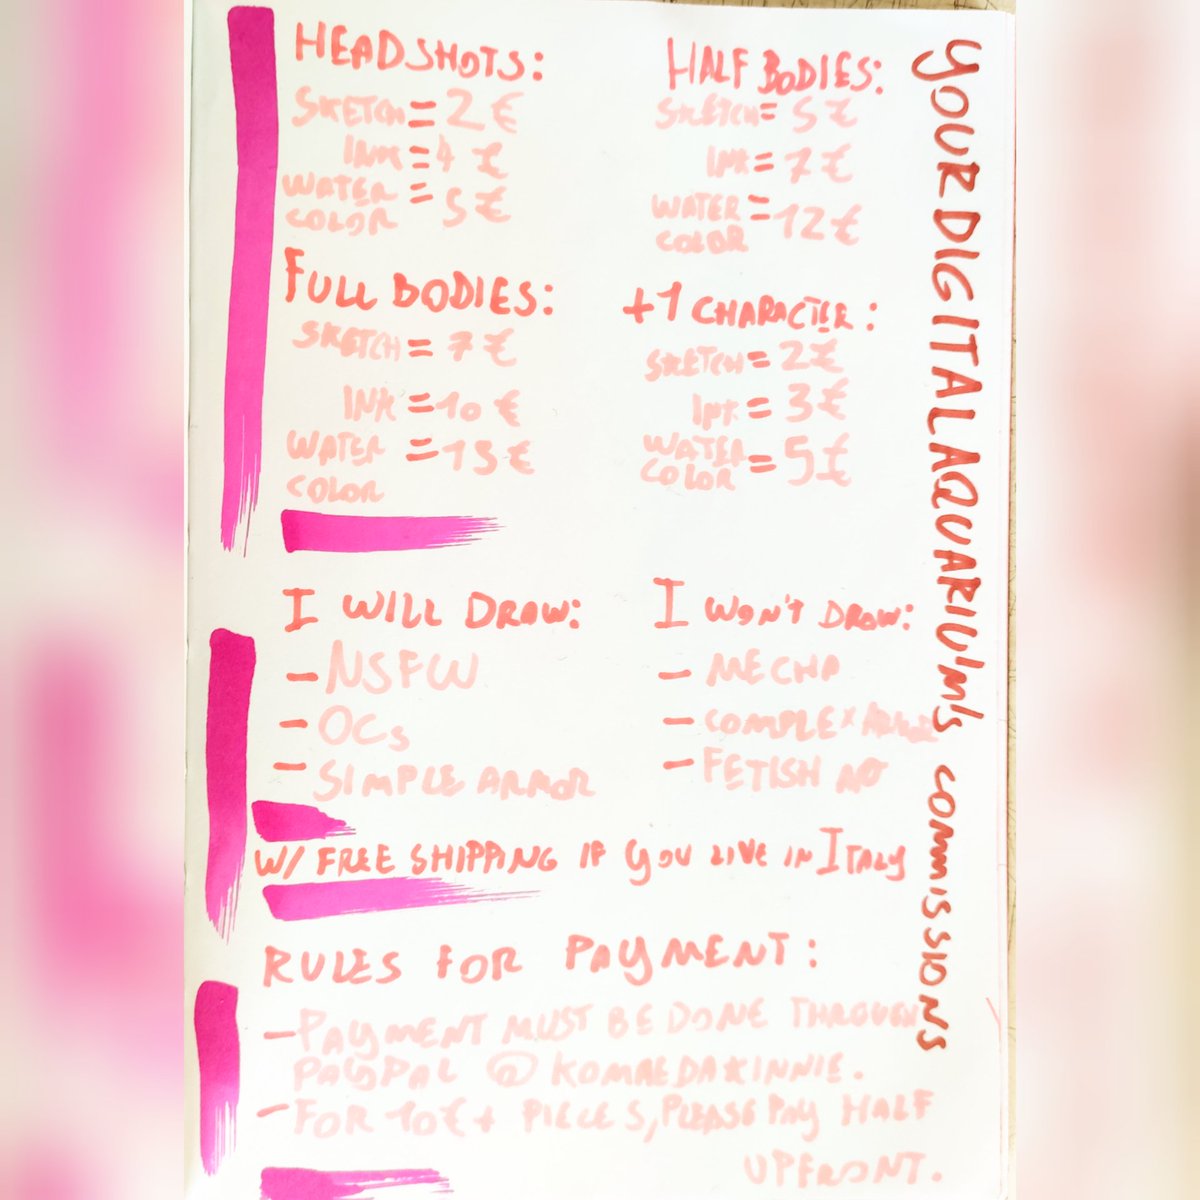 HEADSHOTS:
SKETCH = 2 €
INK = 4 €
WATER
COLOR = 5 €
HALF BODIES:
SKETCH = 5 €
INK = 7 €
WATER
COLOR = 12 €
FULL BODIES:
SKETCH = 7 €
INK = 10 €
WATER
COLOR = 15 €
+1 CHARACTER:
SKETCH = 2 €
INK = 3 €
WATER
COLOR = 5 €
I WILL DRAW:
- NSFW
- OCs
- SIMPLE ARMOR
I WON'T DRAW:
- MECHA
- COMPLEX ARMOR
- FETISH
W/ FREE SHIPPING IF YOU LIVE IN ITALY
RULES FOR PAYMENT:
- PAYMENT MUST BE DONE THROUGH
PAYPAL @ KOMAEDAKINNIE.
- FOR 10€+ PIECES, PLEASE PAY HALF
UPFRONT.
YOURDIGITALAQUARIU'M'S COMMISSIONS